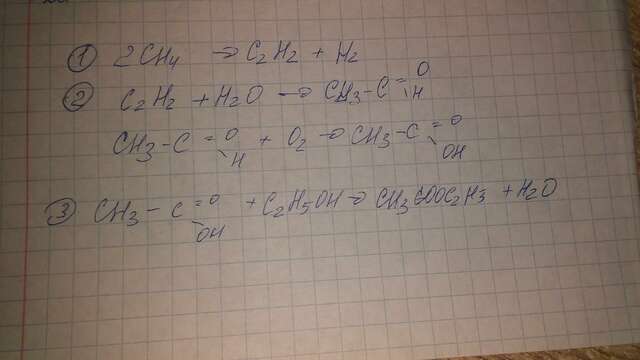 ① 2CH4 → C2H2 + H2
② C2H2 + H2O → CH3-C=O H
CH3-C=O H + O2 → CH3-C=O OH
③ CH3-C=O OH + C2H5OH → CH3COOC2H5 + H2O